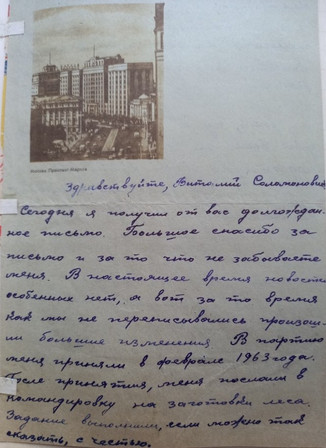 Москва. Проспект Маркса
Здравствуйте, Виталий Соломонович
Сегодня я получил от вас долгождан-
ное письмо. Большое спасибо за
письмо и за то что не забываете
меня. В настоящее время новостей
особенных нет, а вот за то время
как мы не переписывались произош-
ли большие изменения. В партию
меня приняли в феврале 1963 года.
После принятия, меня послали в
командировку на заготовки леса.
Задание выполнили, если можно так
сказать, с честью.